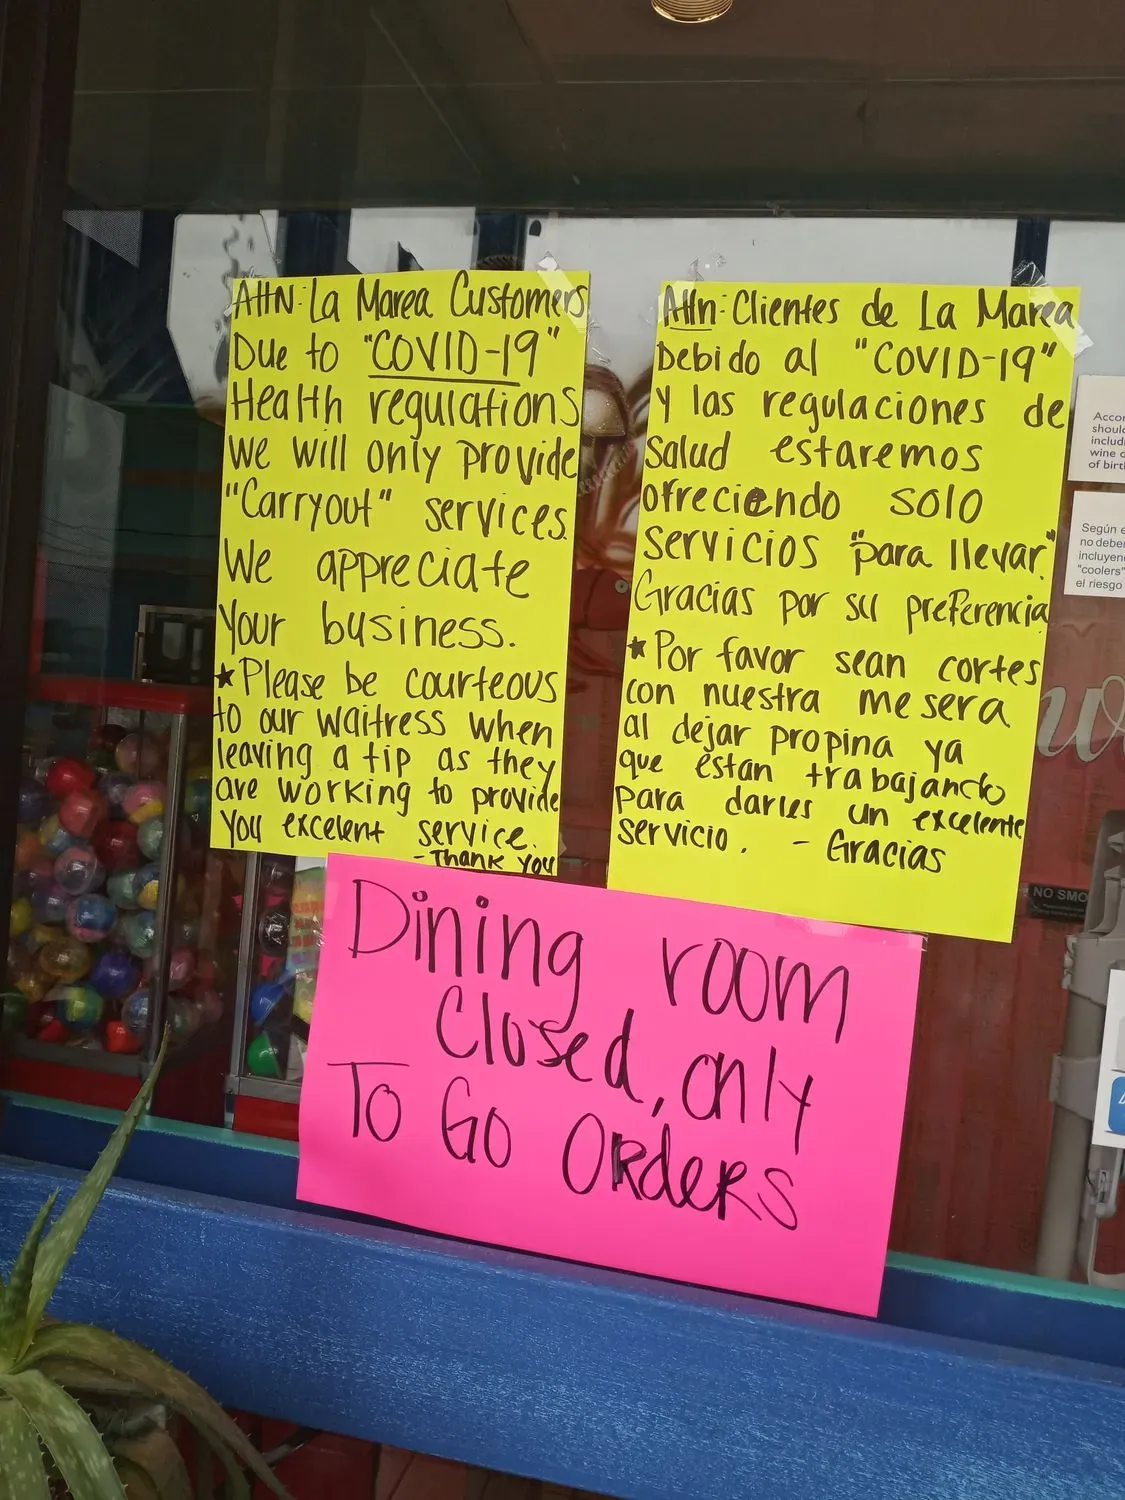 Attn: La Marea Customers
Due to "COVID-19"
Health regulations
We will only provide
"Carryout" services.
We appreciate
Your business.
★Please be courteous
to our waitress when
leaving a tip as they
are working to provide
you excelent service.
- Thank you
Attn: Clientes de La Marea
Debido al "COVID-19"
y las regulaciones de
salud estaremos
ofreciendo solo
servicios "para llevar."
Gracias por su preferencia
★Por favor sean cortes
con nuestra mesera
al dejar propina ya
que estan trabajando
para darles un excelente
servicio. - Gracias
Dining room
Closed, only
To Go Orders
should
wine
of birt
Según
no deben
incluyen
"coolers"
el riesgo
NO SMO